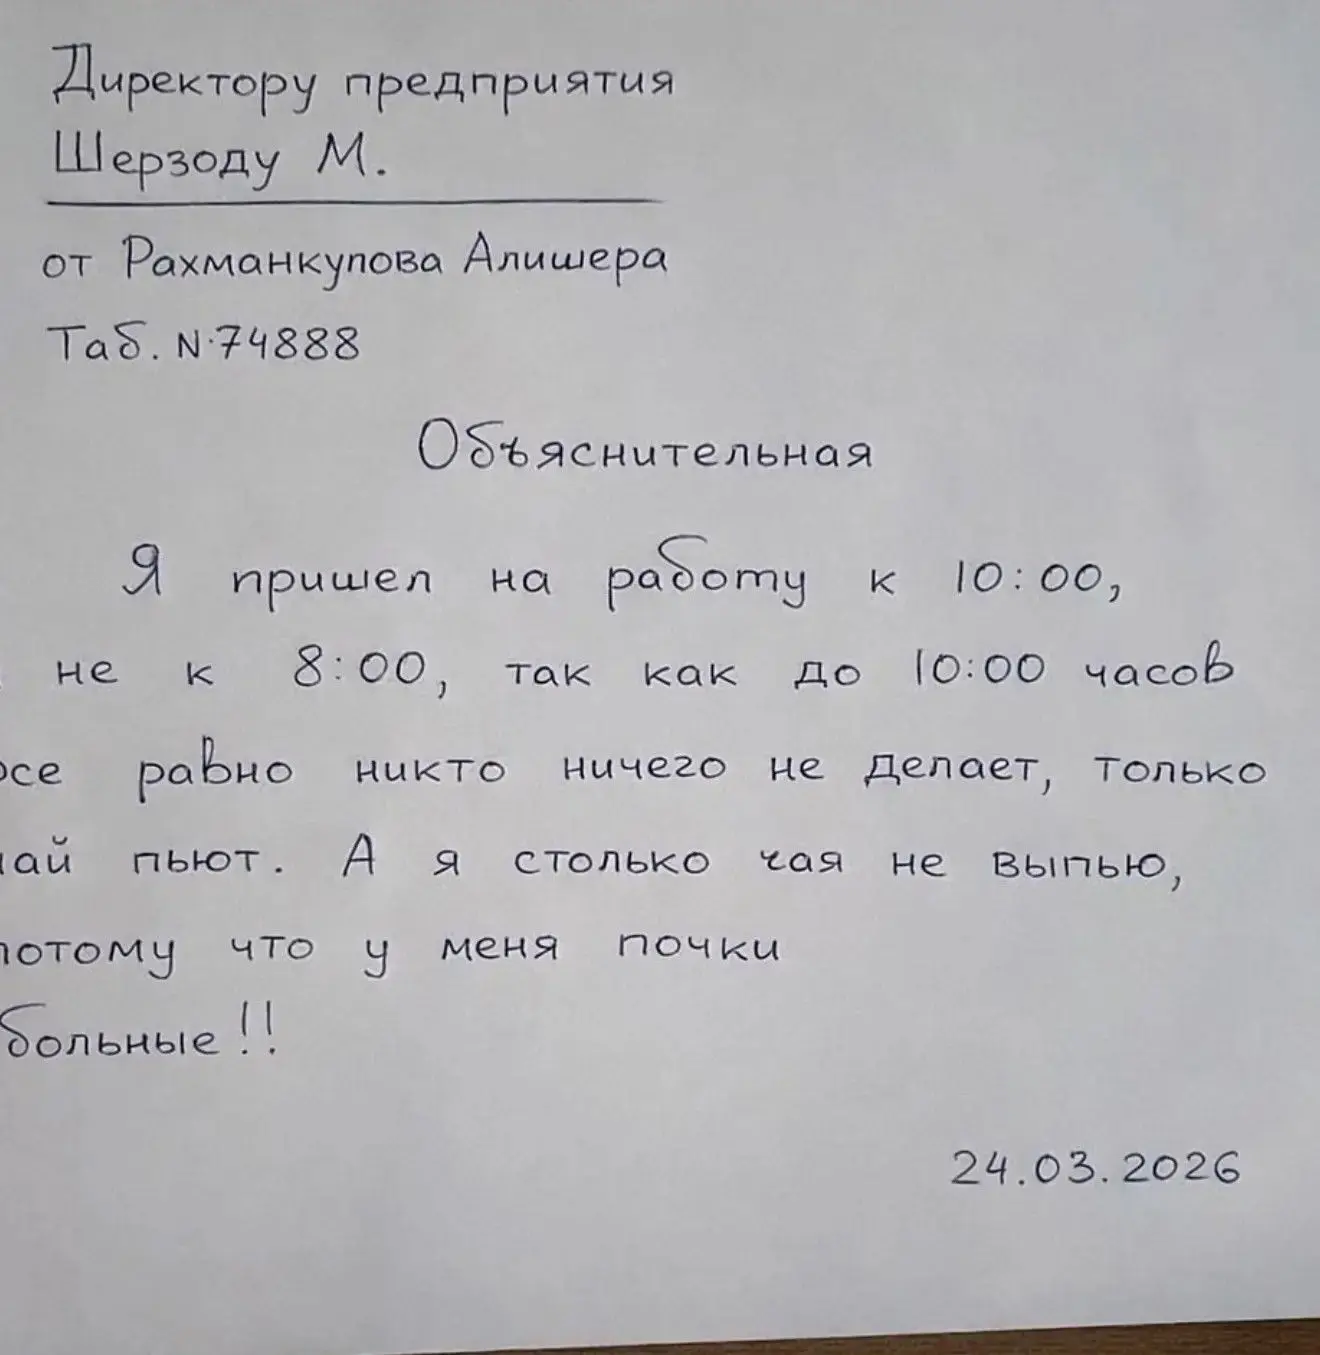 Директору предприятия
Шерзоду М.
от Рахманкупова Алишера
Таб. N·74888
Объяснительная
Я пришел на работу к 10:00,
не к 8:00, так как до 10:00 часов
все равно никто ничего не делает, только
чай пьют. А я столько чая не выпью,
потому что у меня почки
больные!!
24.03.2026